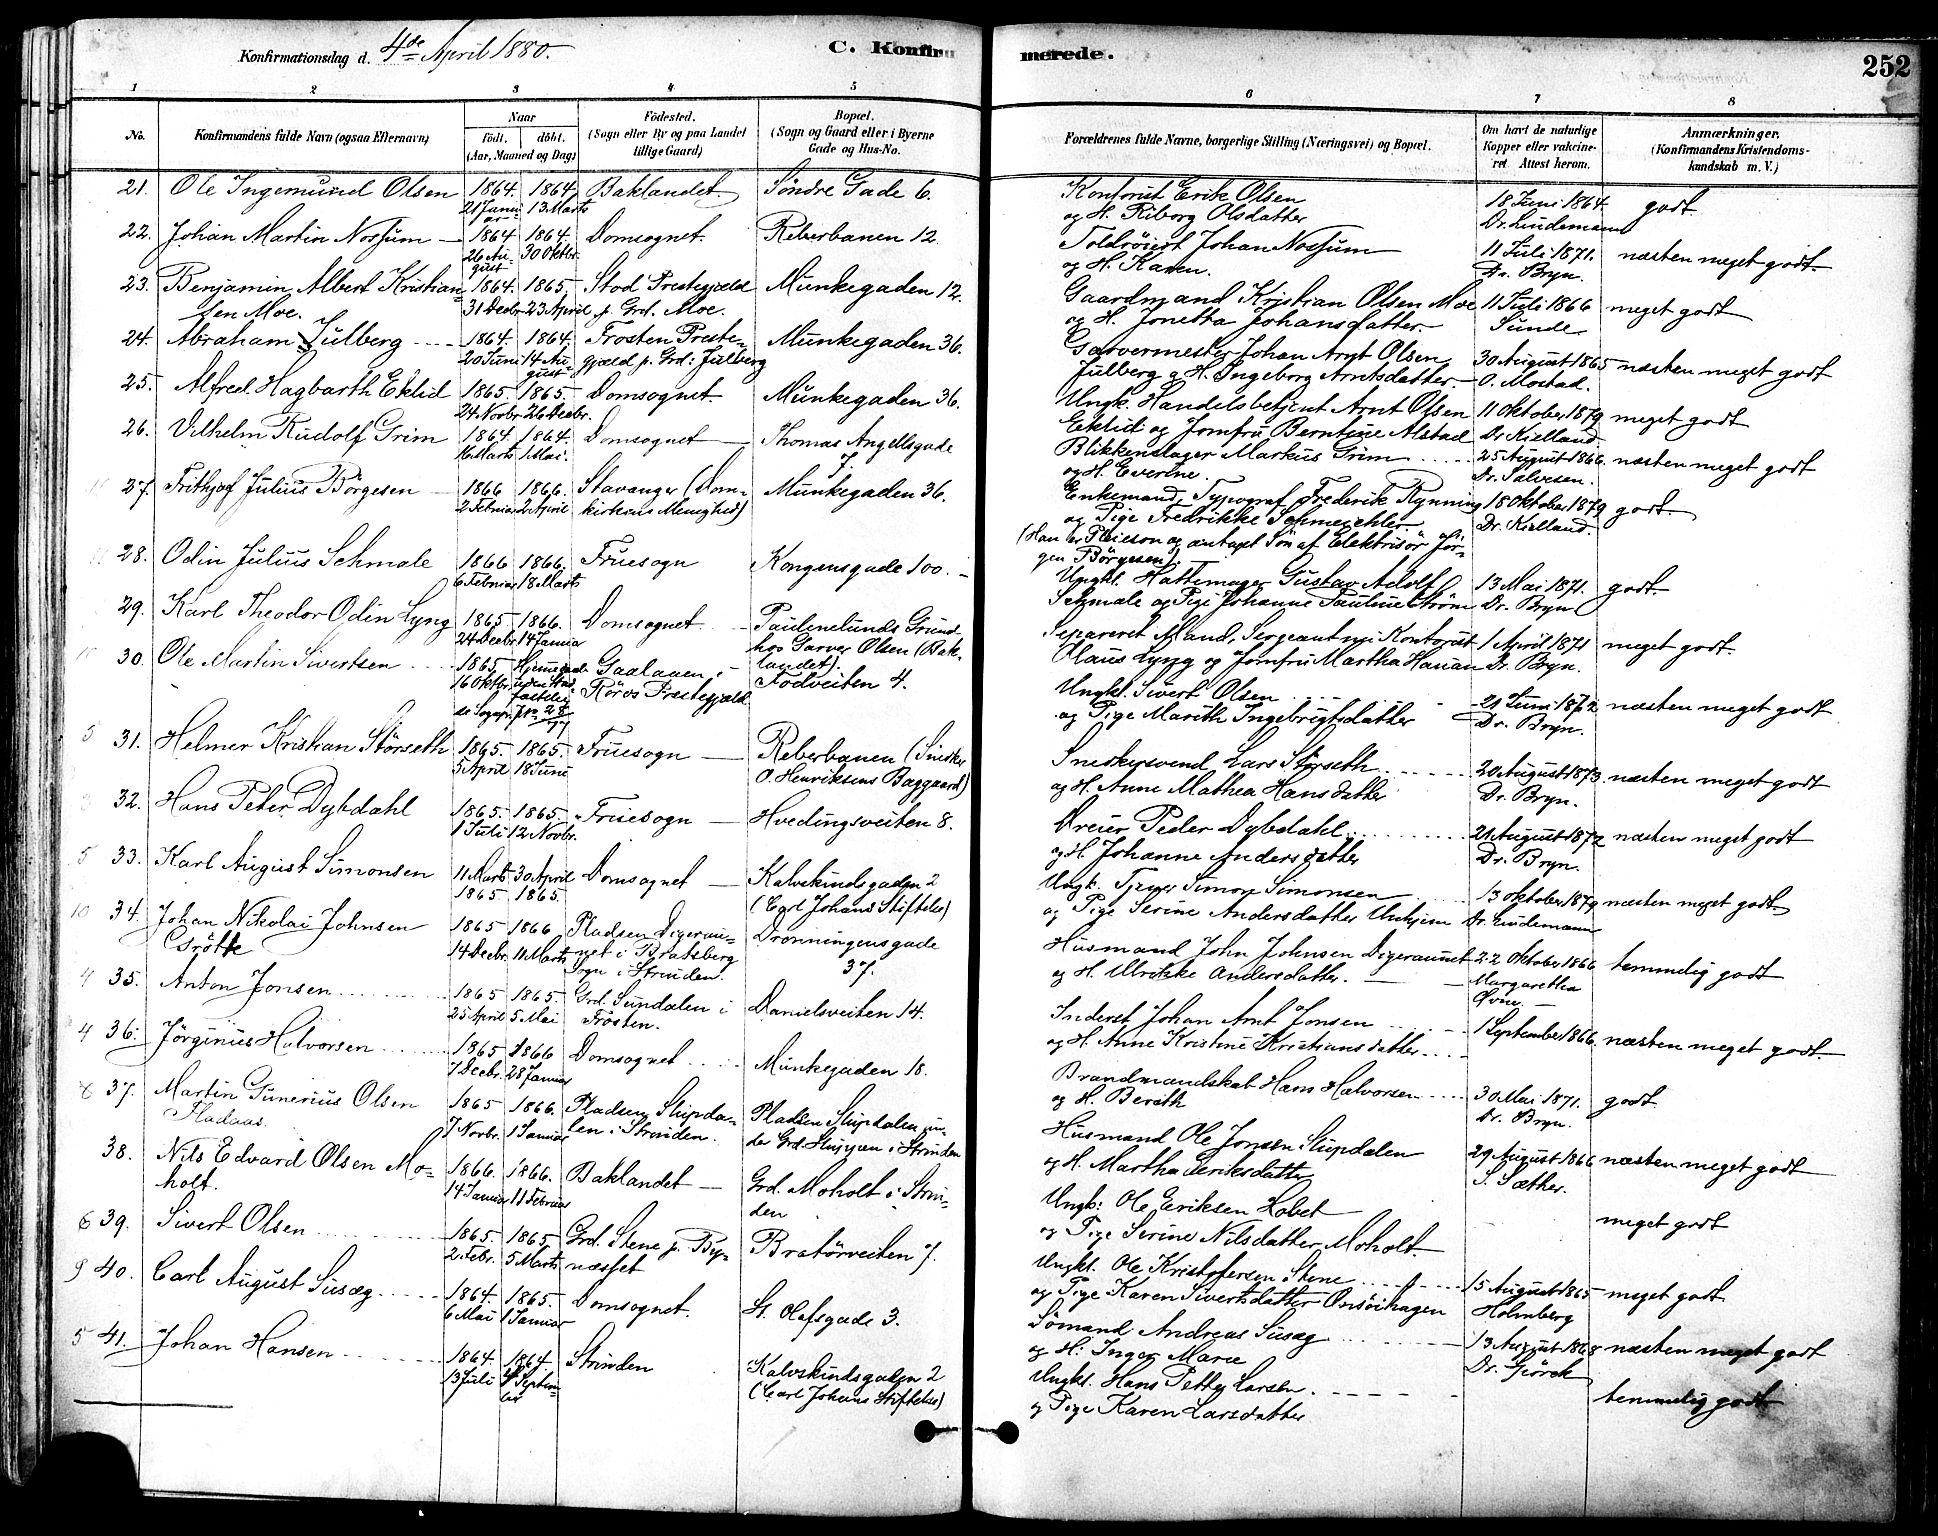 Konfirmationsdag d. 4de April 1880.
C. Konfirmerede.
252
1 2 3 4 5 6 7 8
No.
Konfirmandens fulde Navn (ogsaa Efternavn)
Naar
født. døbt.
(Aar, Maaned og Dag)
Fødested.
(Sogn eller By og paa Landet
tillige Gaard)
Bopæl.
(Sogn og Gaard eller i Byerne
Gade og Hus-No.
Forældrenes fulde Navne, borgerlige Stilling (Næringsvei) og Bopæl.
Om havt de naturlige
Kopper eller vakcine-
ret. Attest herom.
Anmærkninger.
(Konfirmandens Kristendoms-
kundskab m. V.)
21. Ole Ingemund Olsen 1864 1864 Baklandet Søndre Gade 6. Kontorist Erik Olsen 18 Juni 1864 godt
21 Janu- 13 Marts og H. Riborg Olsdatter Dr. Lindemann
ar
22. Johan Martin Nossum 1864 1864. Domsognet. Reberbanen 12. Johan Nossum 11 Juli 1871. næsten meget godt.
26 Au- 30 Oktbr. og H. Karen. Dr. Bryn.
gust
23. Benjamin Albert Kristian- 1864. 1865. Stod Prestegjæld Munkegaden 12. Gaardmand Kristian Olsen Moe 11 Juli 1866 meget godt
sen Moe. 31 Decbr. 23 April p. Grd. Moe. og H. Jonetta Johansdatter Sunde
24. Abraham Julberg 1864. 1864. Frosten Preste- Munkegaden 36. Garvermester Johan Arnt Olsen 30 August 1865 næsten meget godt
20 Juni 14 Au- gjæld p. Grd: Julberg Julberg og H. Ingeborg Arntsdatter O. Mostad.
gust
25. Alfred Hagbarth Eklid 1865. 1865. Domsognet. Munkegaden 36. Ungk. Handelsbetjent Arnt Olsen 11 Oktober 1879 meget godt
24 Novbr. 26 Decbr. Eklid og Jomfru Berntine Alstad Dr Kielland
26. Vilhelm Rudolf Grim 1864. 1864. Domsognet Thomas Angellsgade Blikkenslager Markus Grim 25 August 1866. næsten meget godt
16 Marts 1 Mai. 7. og H. Everine. Dr. Salvesen.
27. Frithjof Julius Børgesen 1866 1866. Stavanger (Dom- Munkegaden 36. Enkemand, Typograf Frederik Rynning 18 Oktober 1879 godt.
2 Februar 2 April kirkens Menighed) og Pige Fredrikke Schmeichler. Dr. Kielland.
(Han er Pleiesøn og antaget Søn af Elektrisør Jør-
gen Børgesen)
28. Odin Julius Schmale 1866 1866. Fruesogn Kongensgade 100. Ungk. Hattemager Gustav Adolf 13 Mai 1871. godt.
6 Februar 18 Marts Schmale og Pige Johanne Pauline Strøm Dr. Bryn
29. Karl Theodor Odin Lyng 1865 1866. Domsognet Paulinelunds Grund Separeret Mand, Sergeant nu Kontorist 1 April 1871 meget godt.
24 Decbr. 14 Januar hos Garver Olsen (Bak- Olaus Lyng og Jomfru Martha Hanan Dr. Bryn.
landet).
30. Ole Martin Sivertsen 1865 Hjemmedøbt Gaalaaen i Fodveiten 4. Ungk. Sivert Olsen 21 Juni 1872 næsten meget godt
16 Oktbr. uden Stad- Røros Prestegjæld og Pige Marith Ingebrigtsdatter Dr. Bryn.
fæstelse
31. Helmer Kristian Størseth 1865. 1865. Fruesogn Reberbanen (Snedker Snedkersvend Lars Størseth 20 August 1873. næsten meget godt
5 April 18 Juni O. Henriksens Baggaard) og H. Anne Mathea Hansdatter Dr. Bryn.
32. Hans Peter Dybdahl 1865. 1865. Fruesogn Hvedingsveiten 8. Dreier Peder Dybdahl 21 August 1872 næsten meget godt
1 Juli 12 Novbr. og H. Johanne Andersdatter Dr. Bryn.
5 33. Karl August Simonsen 11 Marts 30 April Domsognet Kalvskindsgaden 2 Ungk. Tjener Simon Simonsen 13 Oktober 1879 næsten meget godt
1865 1865. (Carl Johans Stiftelse) og Pige Serine Andersdatter Dr. Lindemann
10 34. Johan Nikolai Johnsen 1865 1866 Pladsen Digerau- Dronningensgade Husmand John Johnsen Digeraunet 22 Oktober 1866 temmelig godt
Grøtte 14 Decbr. 11 Marts net i Bratsberg 37. og H. Ulrikke Andersdatter. Margaretha
Sogn i Strinden. Øvne.
4 35. Anton Jonsen 1865 1865. Grd. Sundalen i Danielsveiten 14. Inderst Johan Arnt Jonsen 1 September 1866. næsten meget godt
25 April 5 Mai Frosten. og H. Anne Kristine Kristiansdatter
4 36. Jørginius Halvorsen 1865 1866 Domsognet Munkegaden 18. Brandmandskab Hans Halvorsen 30 Mai 1871. godt
7 Decbr. 28 Januar og H. Berith Dr. Bryn.
8 37. Martin Gunerius Olsen 1865 1866. Pladsen Stupda- Pladsen Stupdalen un- Husmand Ole Jonsen Stupdalen 29 August 1866 næsten meget godt
Fladaas. 7 Novbr. 1 Januar len i Strinden. der Grd. i Strinden og H. Martha Eriksdatter S. Sæther.
38. Nils Edvard Olsen Mo- 1866. 1866. Baklandet Grd. Moholt i Strin- Ungk: Ole Eriksen meget godt
holt. 14 Januar 11 Februar den og Pige Serine Nilsdatter Moholt.
6 39. Sivert Olsen 1865. 1865 Grd. Stene p. Byg- Bratørveiten 7. Ungk. Ole Kristofersen Stene 15 August 1865 meget godt
2. Febr. 5 Marts næsset og Pige Karen Sivertsdatter Onsøihagen Holmberg
9 40. Carl August Susæg 1864. 1865. Domsognet. St. Olafsgade 3. Sømand Andreas Susæg 13 August 1868 næsten meget godt
6 Mai 1 Januar og H: Inger Marie Dr.
5 41. Johan Hansen 1864. 1864. Strinden Kalvskindsgaden 2 Ungk. Hans Petter Larsen. temmelig godt
13 Juli Septem- (Carl Johans Stiftelse) og Pige Karen Larsdatter
ber